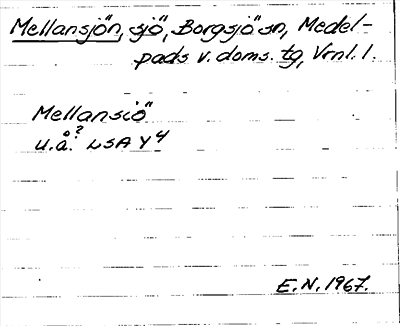 Mellansjön, sjö, Borgsjö sn, Medel-
pads v. doms. tg, Vrnl. l.
Mellansiö
u.å.? LSA Y4
E.N. 1967.